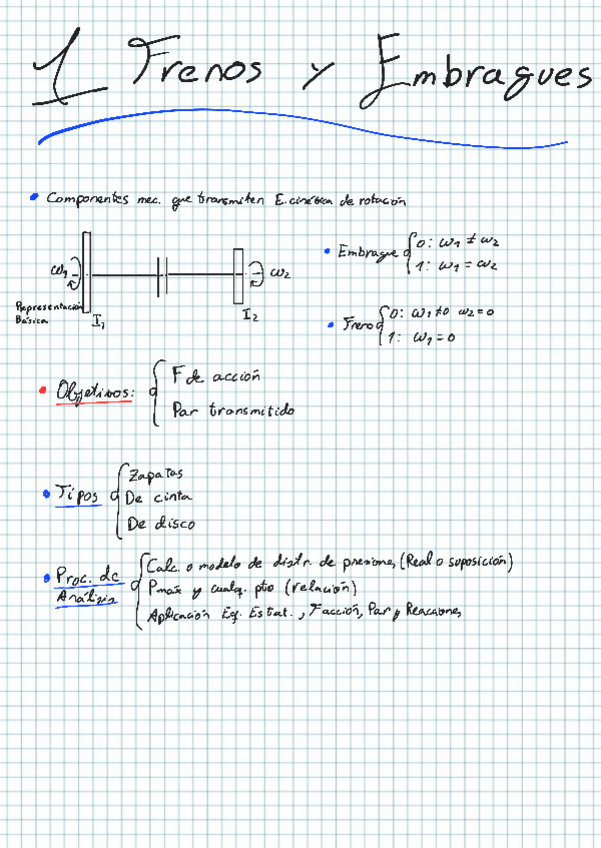 1 Frenos y Embragues
• Componentes mec. que transmiten E. cinética de rotación
ω1
ω2
Representación
Básica
I1
I2
• Embrague
0: ω1 ≠ ω2
1: ω1 = ω2
• Freno
0: ω1≠0 ω2=0
1: ω1=0
• Objetivos:
F de acción
Par transmitido
• Tipos
Zapatas
De cinta
De disco
• Proc. de
Análisis
Calc. o modelo de distr. de presiones (Real o suposición)
Pmáx y cualq. pto (relación)
Aplicación Eq. Estat., F acción, Par y Reacciones